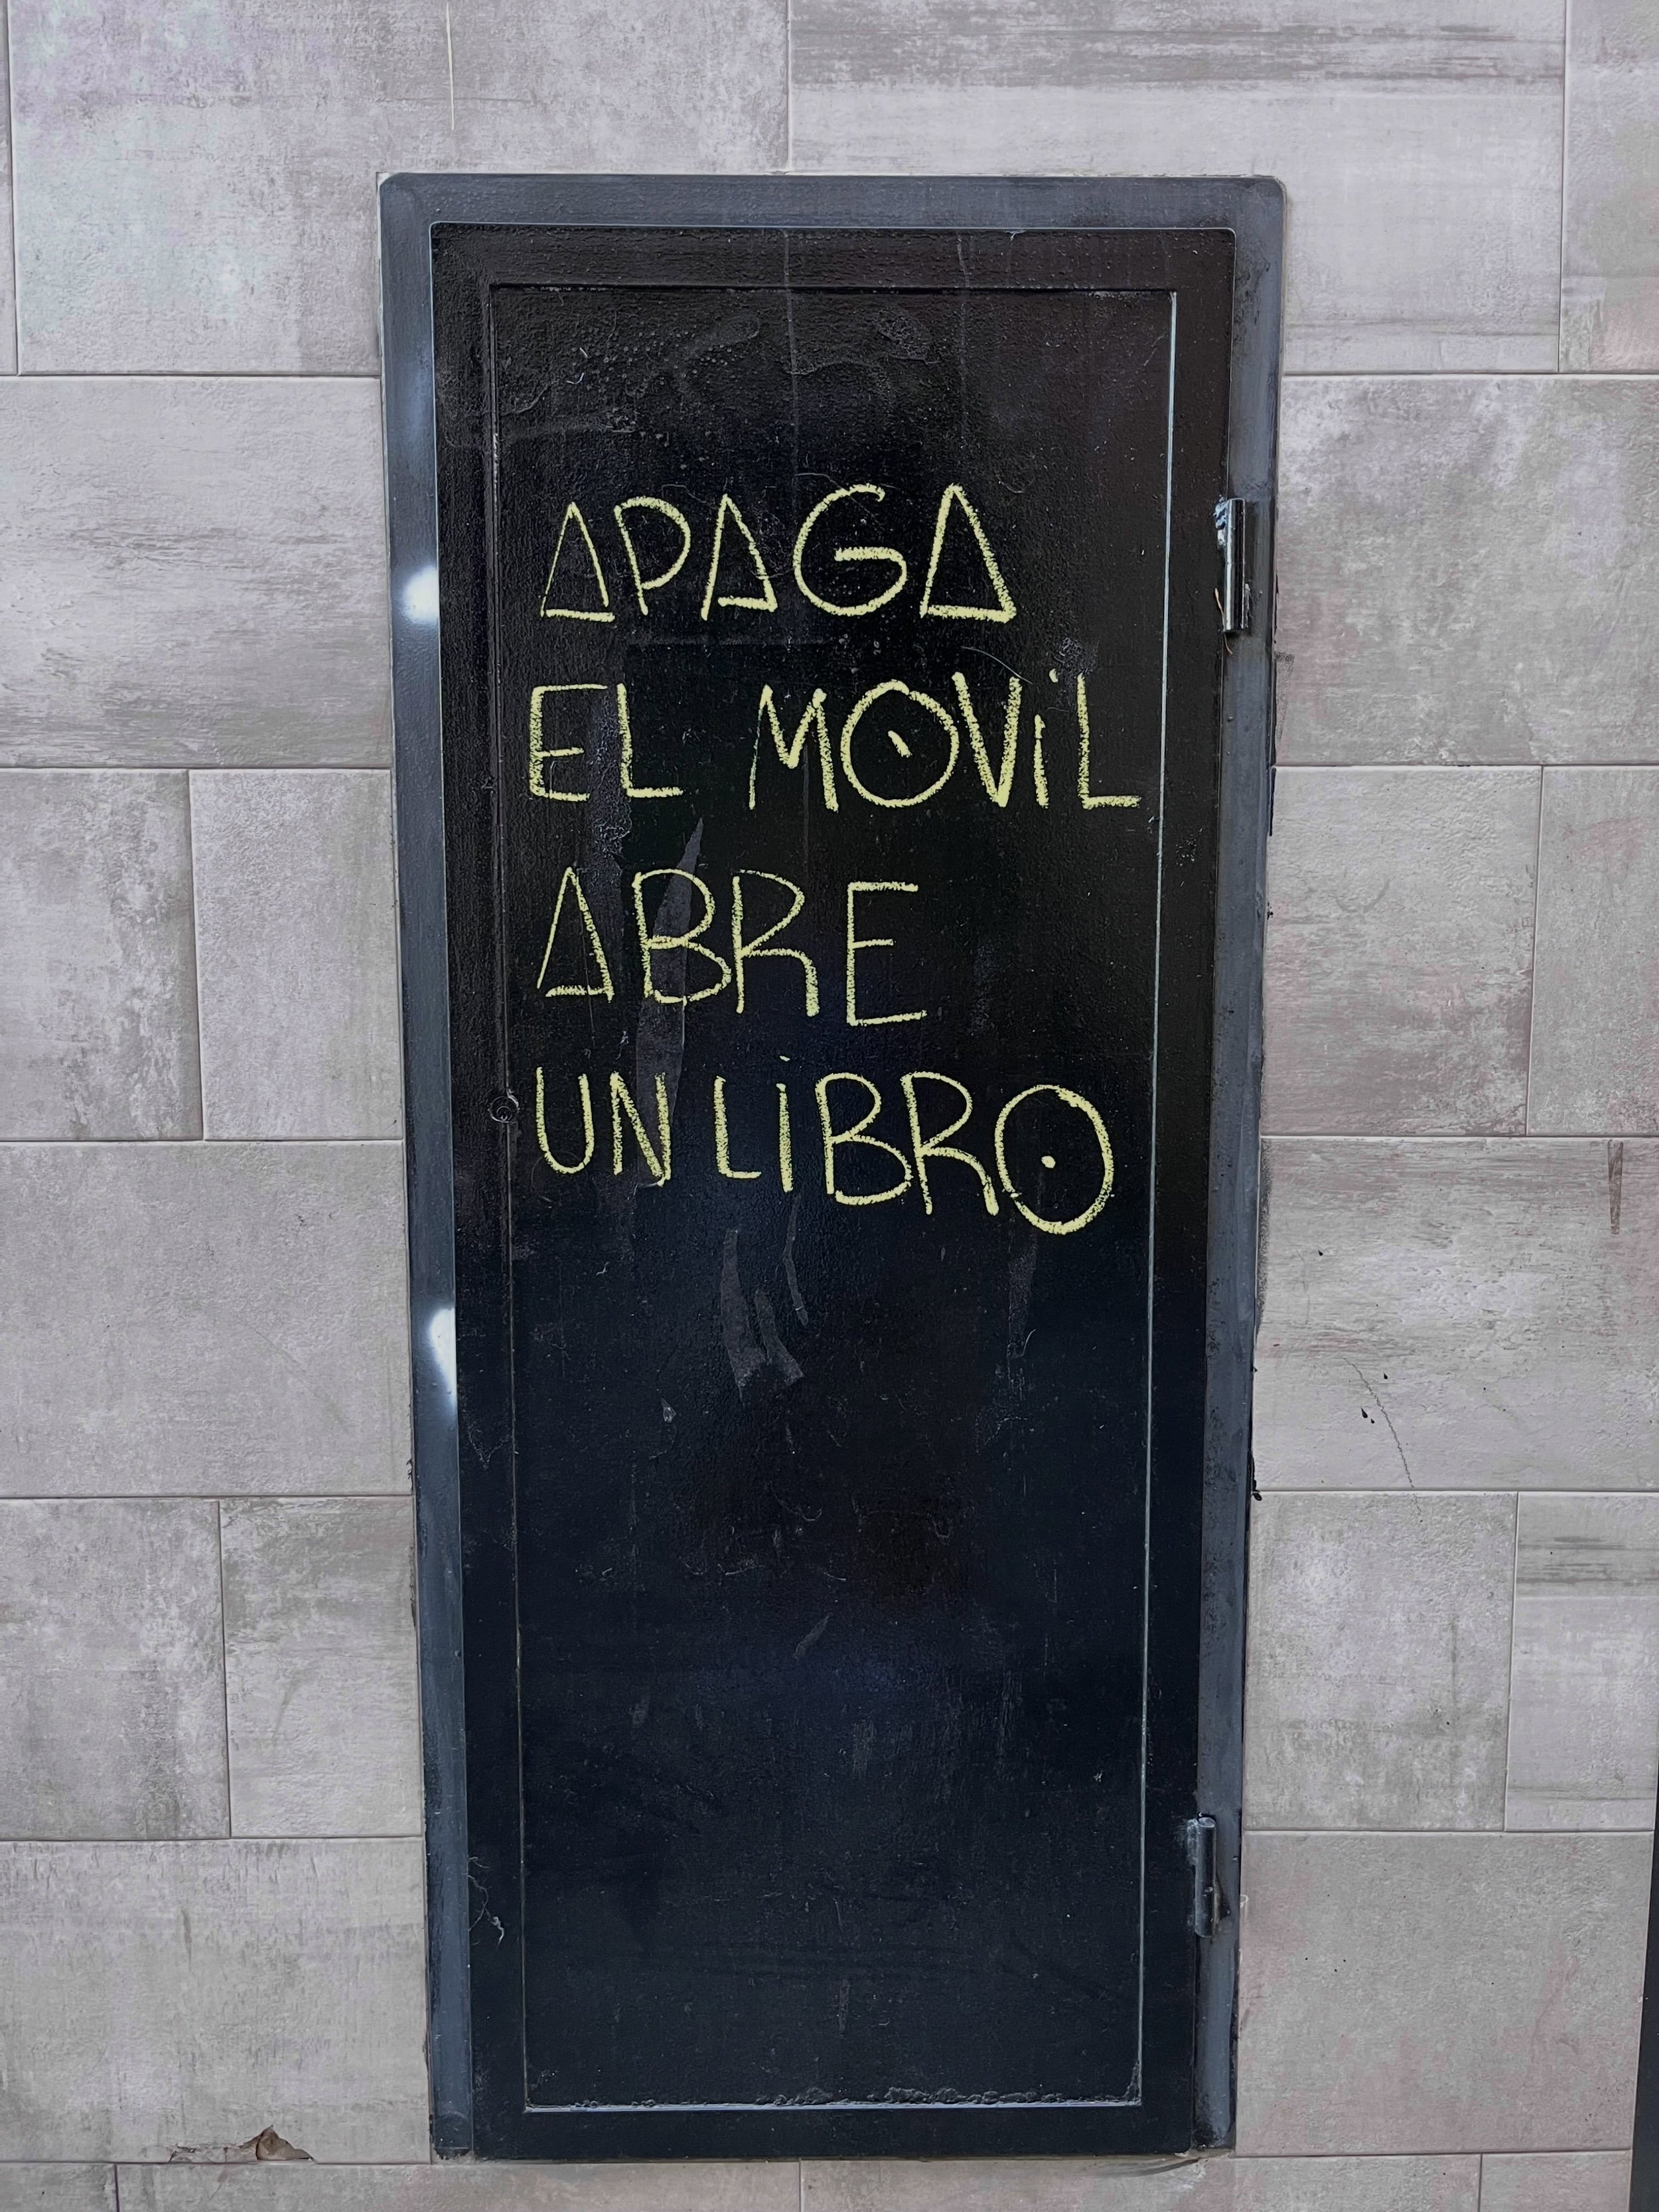 APAGA
EL MOViL
ABRE
UN LiBRO